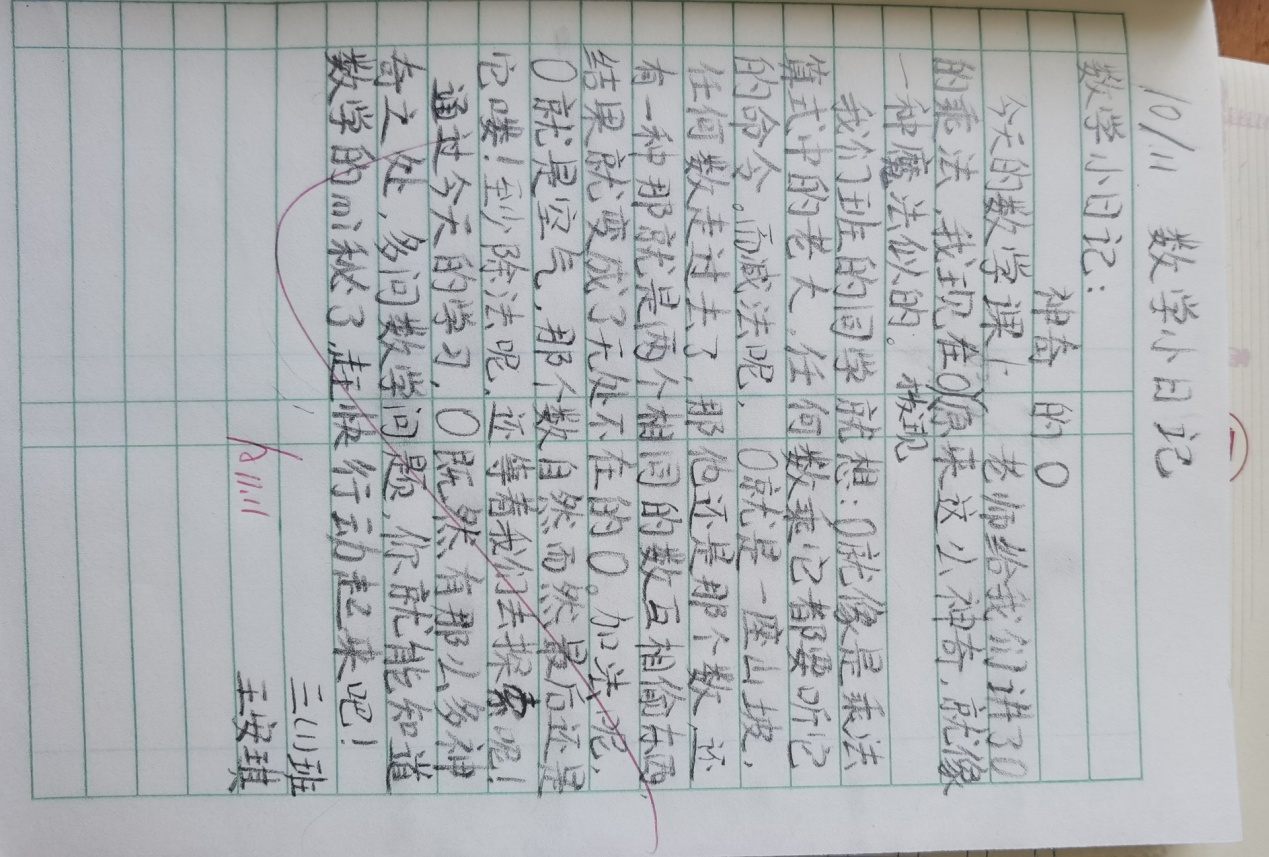 10/11 数学小日记
数学小日记：
神奇的0
今天的数学课上老师给我们讲了0
的乘法，我现在0原来这么神奇，就像
我现
一种魔法似的。
我们班的同学就想：0就像是乘法
算式中的老大，任何数乘它都要听它
的命令。而减法呢，0就是一座山坡，
任何数走过去了，那他还是那个数，还
有一种那就是两个相同的数互相偷东西，
结果就变成了无处不在的0。加法呢，
0就是空气，那个数自然而然最后还是
它喽！至少除法呢，还等着我们去探索吧！
通过今天的学习，0既然有那么多神
奇之处，多问数学问题，你就能知道
数学的秘了，赶快行动起来吧！
三(1)班
王安琪
11.11